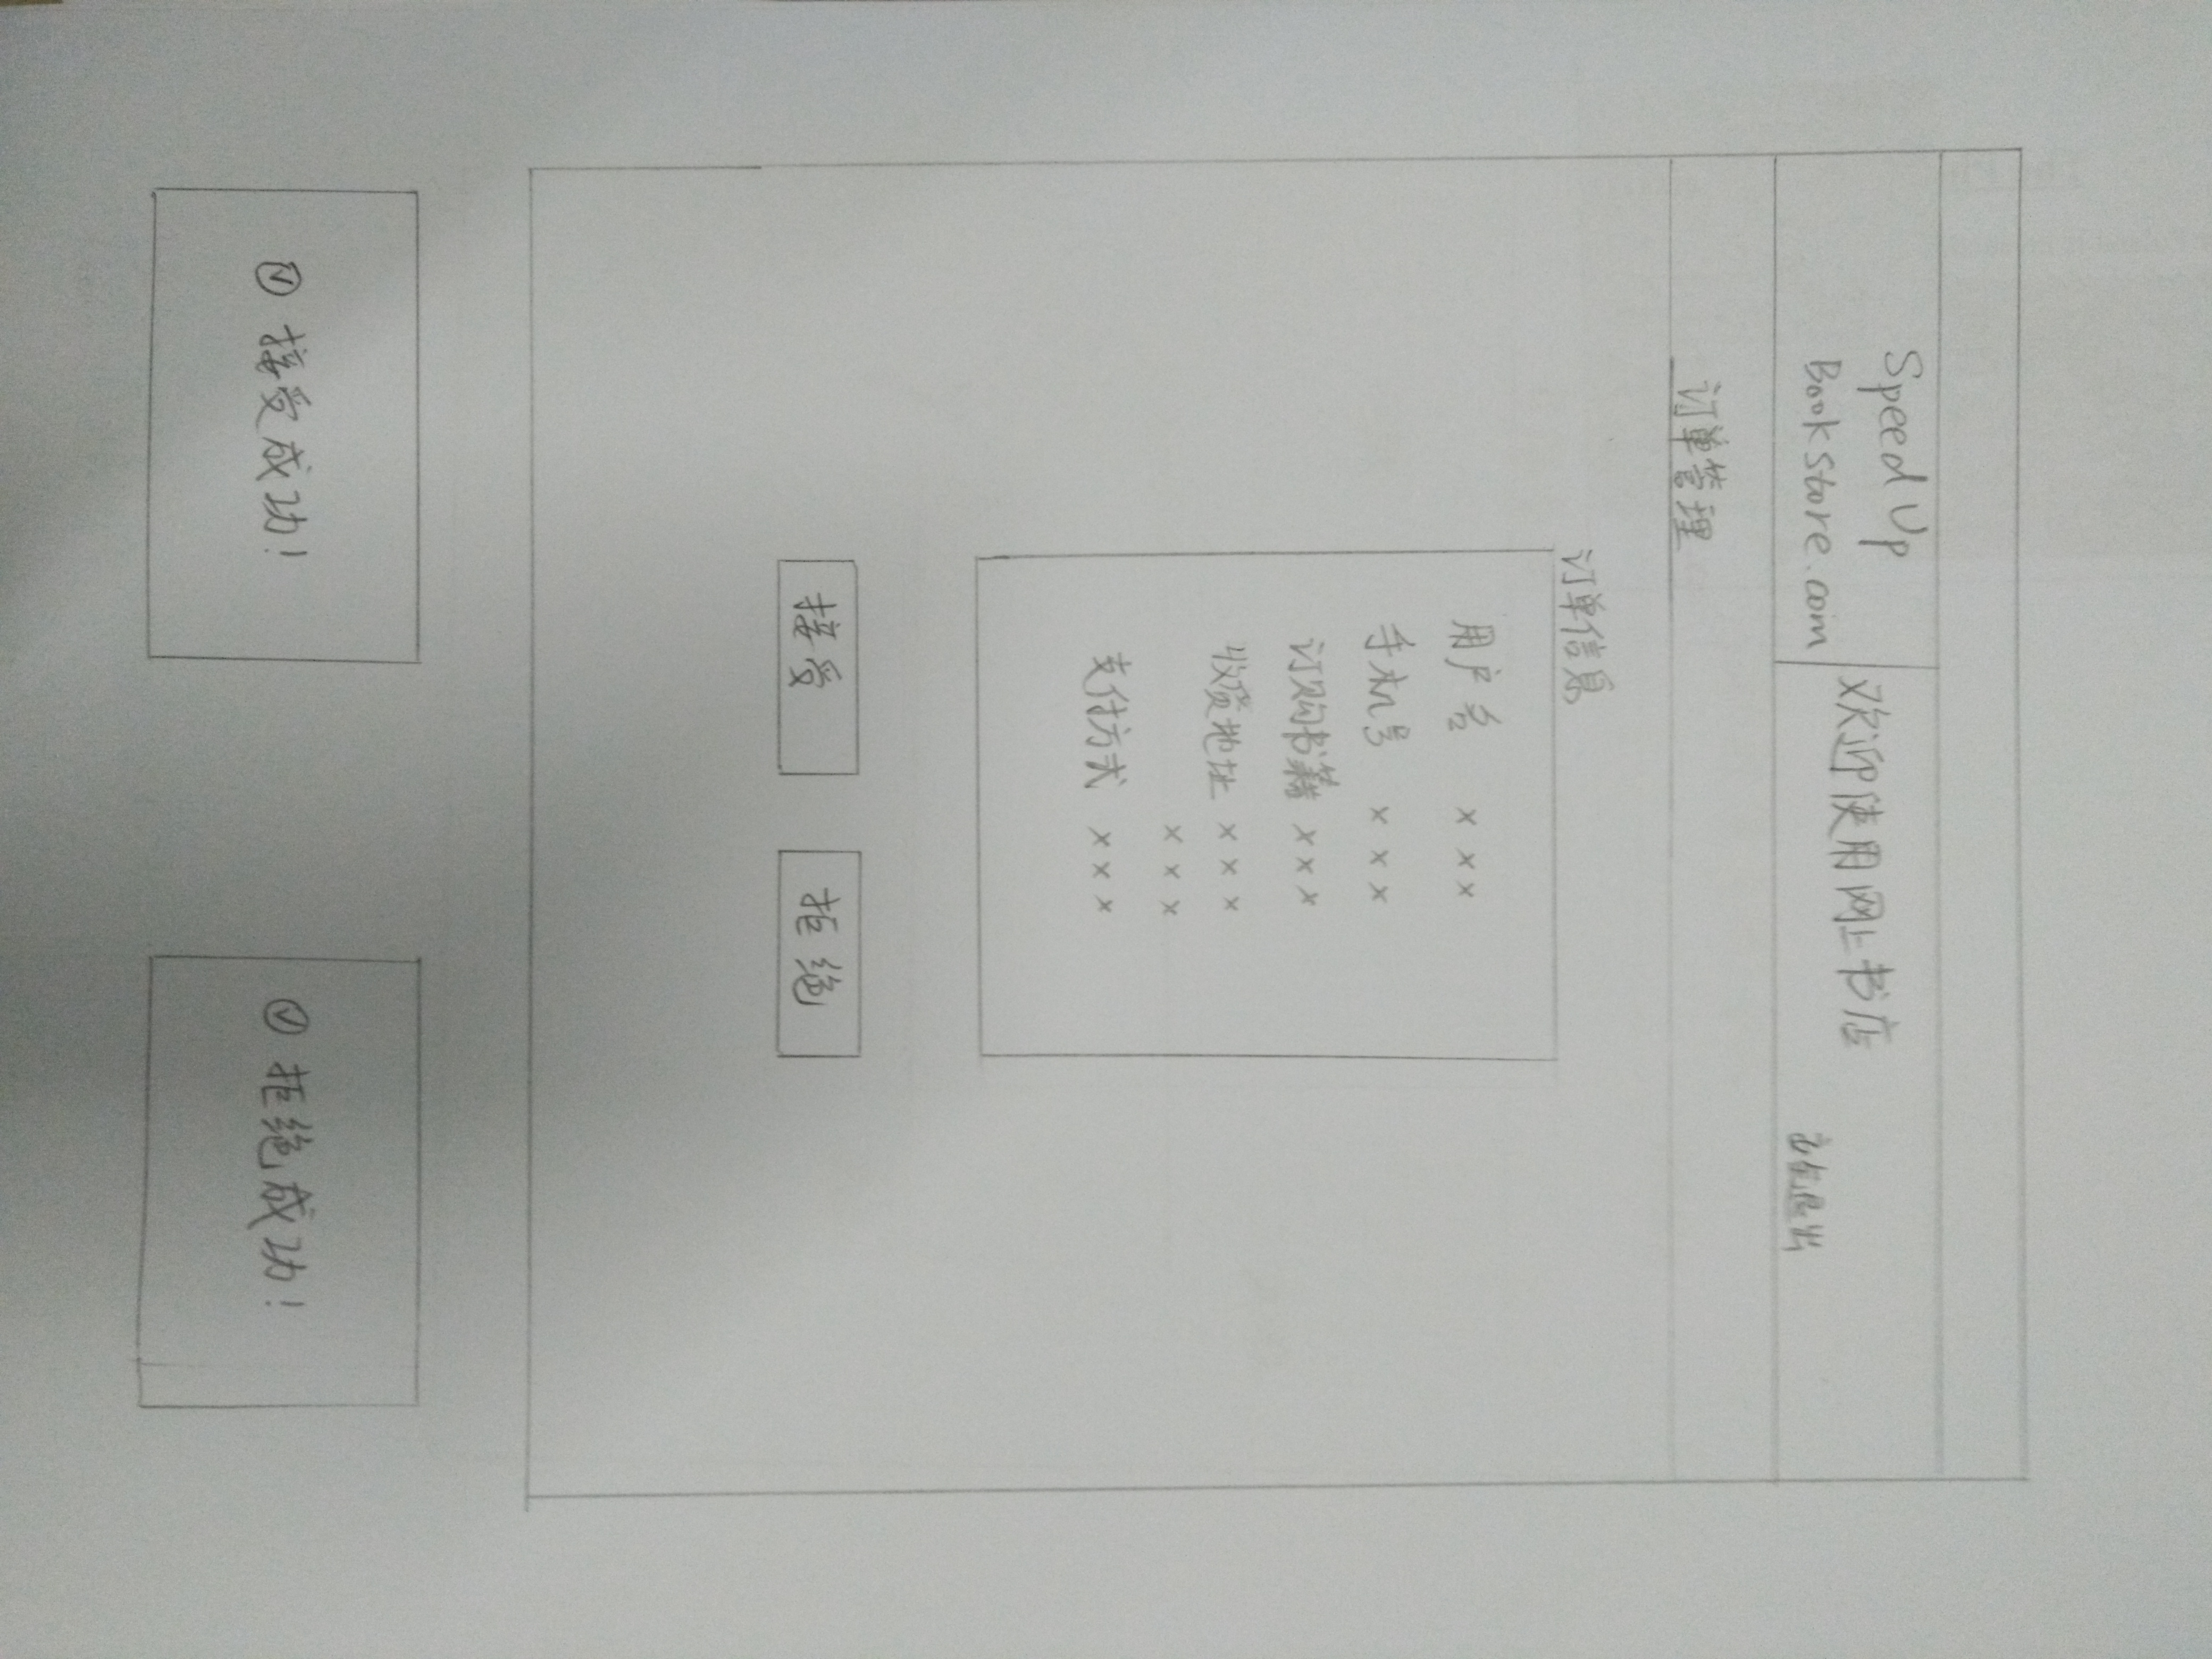 Speed Up
Bookstore.com
欢迎使用网上书店
安全退出
订单管理
订单信息
用户名 ×××
手机号 ×××
订购书籍 ×××
收货地址 ×××
×××
支付方式 ×××
接受
拒绝
接受成功!
拒绝成功!